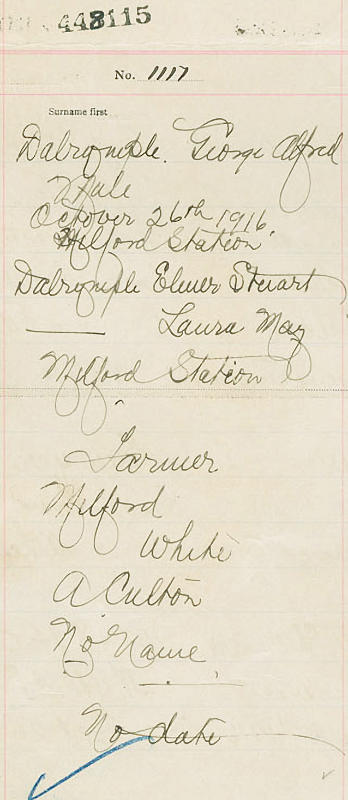 448115
No. 1117
Surname first
Dalrymple. George Alfred
Male
October 26th 1916.
Milford Station
Dalrymple Elmer Steuart
Laura May
Milford Station
Farmer
Milford
White
A Culton
No Name
No date